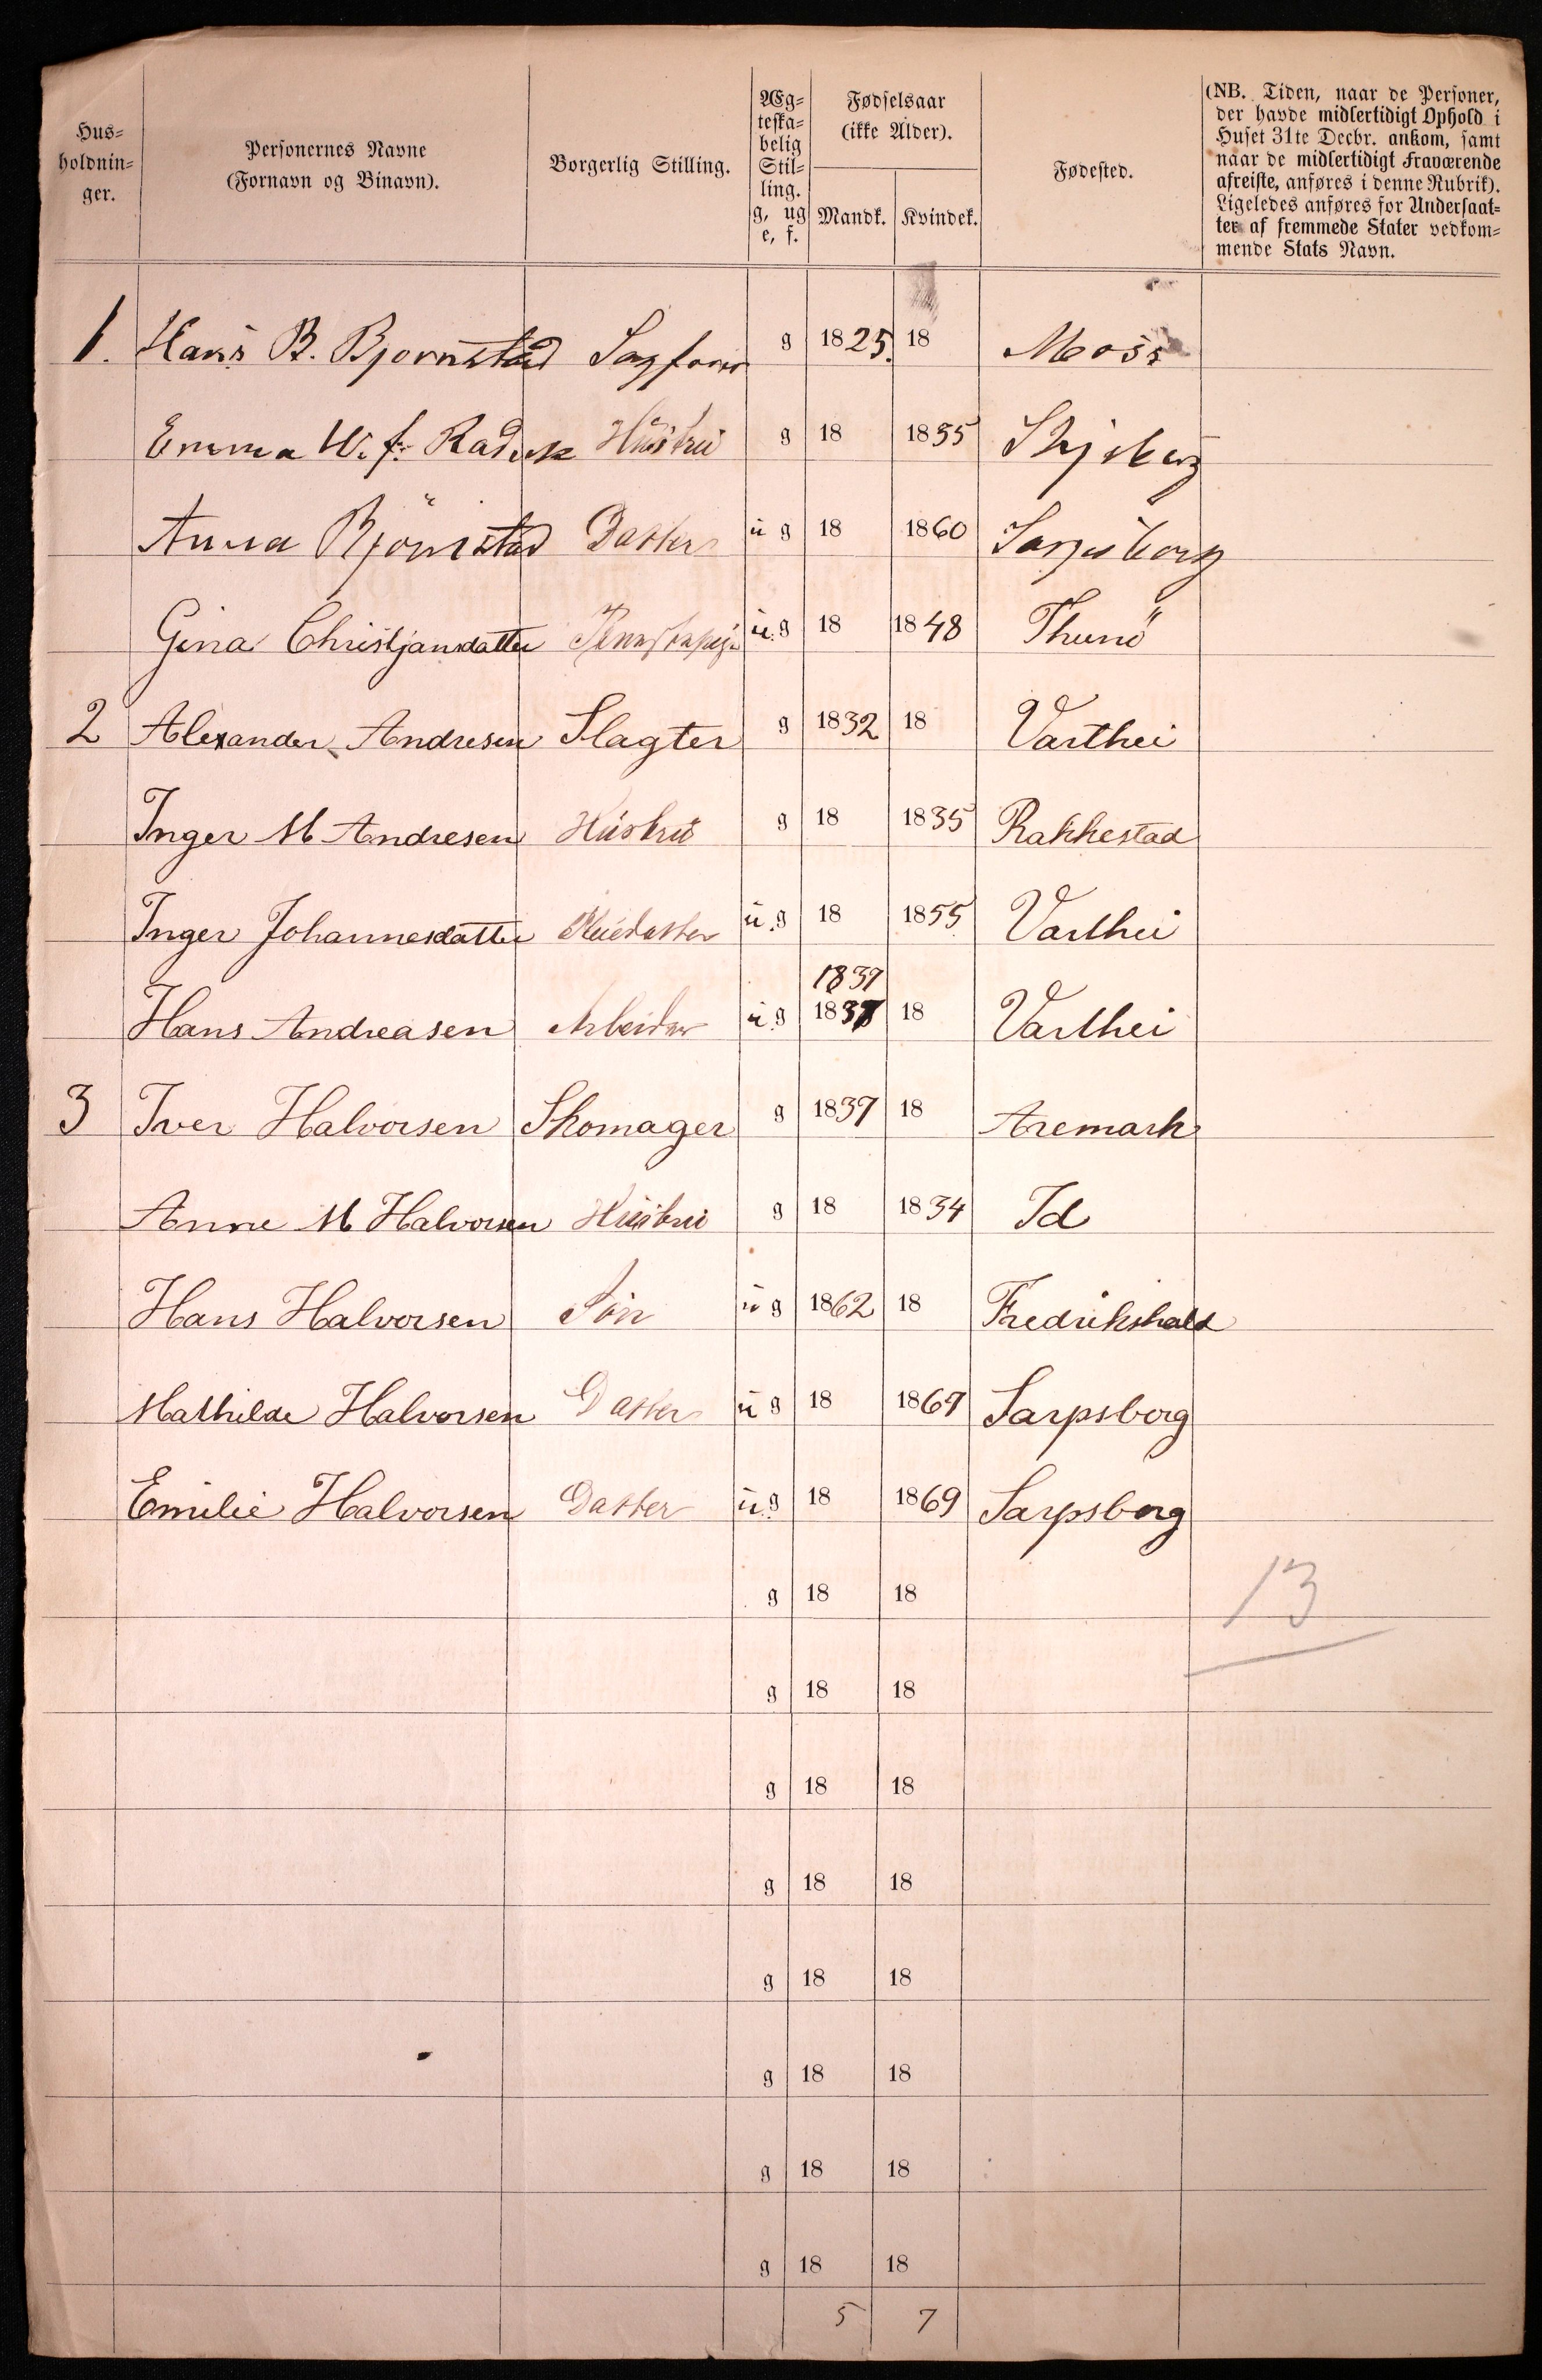 Hus=
holdnin=
ger.
Personernes Navne
(Fornavn og Binavn).
Borgerlig Stilling.
Æg=
teska=
belig
Stil=
ling.
g, ug
e, f.
Fødselsaar
(ikke Alder).
Mandk. Kvindek.
Fødested.
(NB. Tiden, naar de Personer,
der havde midlertidigt Ophold i
Huset 31te Decbr. ankom, samt
naar de midlertidigt Fraværende
afreiste, anføres i denne Rubrik).
Ligeledes anføres for Undersaat=
ter af fremmede Stater vedkom=
mende Stats Navn.
1. Hans B. Bjornstad g 1825. 18 Moss
Emma W. f. Hustru g 18 1835 Skjeberg
Anna Bjönstad Datter ug 18 1860 Sarpsborg
Gina Christjansdatter ug 18 1848 Thunö
2 Alexander Andresen Slagter g 1832 18 Varthei
Inger M Andresen Hustru g 18 1835 Rakkestad
Inger Johannesdatter ug 18 1855 Varthei
1839
Hans Andreasen Arbeider ug 1837 18 Varthei
3 Iver Halvorsen Skomager g 1837 18 Aremark
Anne M Halvorsen Hustru g 18 1834 Id
Hans Halvorsen Sön ug 1862 18 Fredrikshald
Mathilde Halvorsen Datter ug 18 1867 Sarpsborg
Emilie Halvorsen Datter ug 18 1869 Sarpsborg
g 18 18
13
g 18 18
g 18 18
g 18 18
g 18 18
g 18 18
g 18 18
g 18 18
5 7